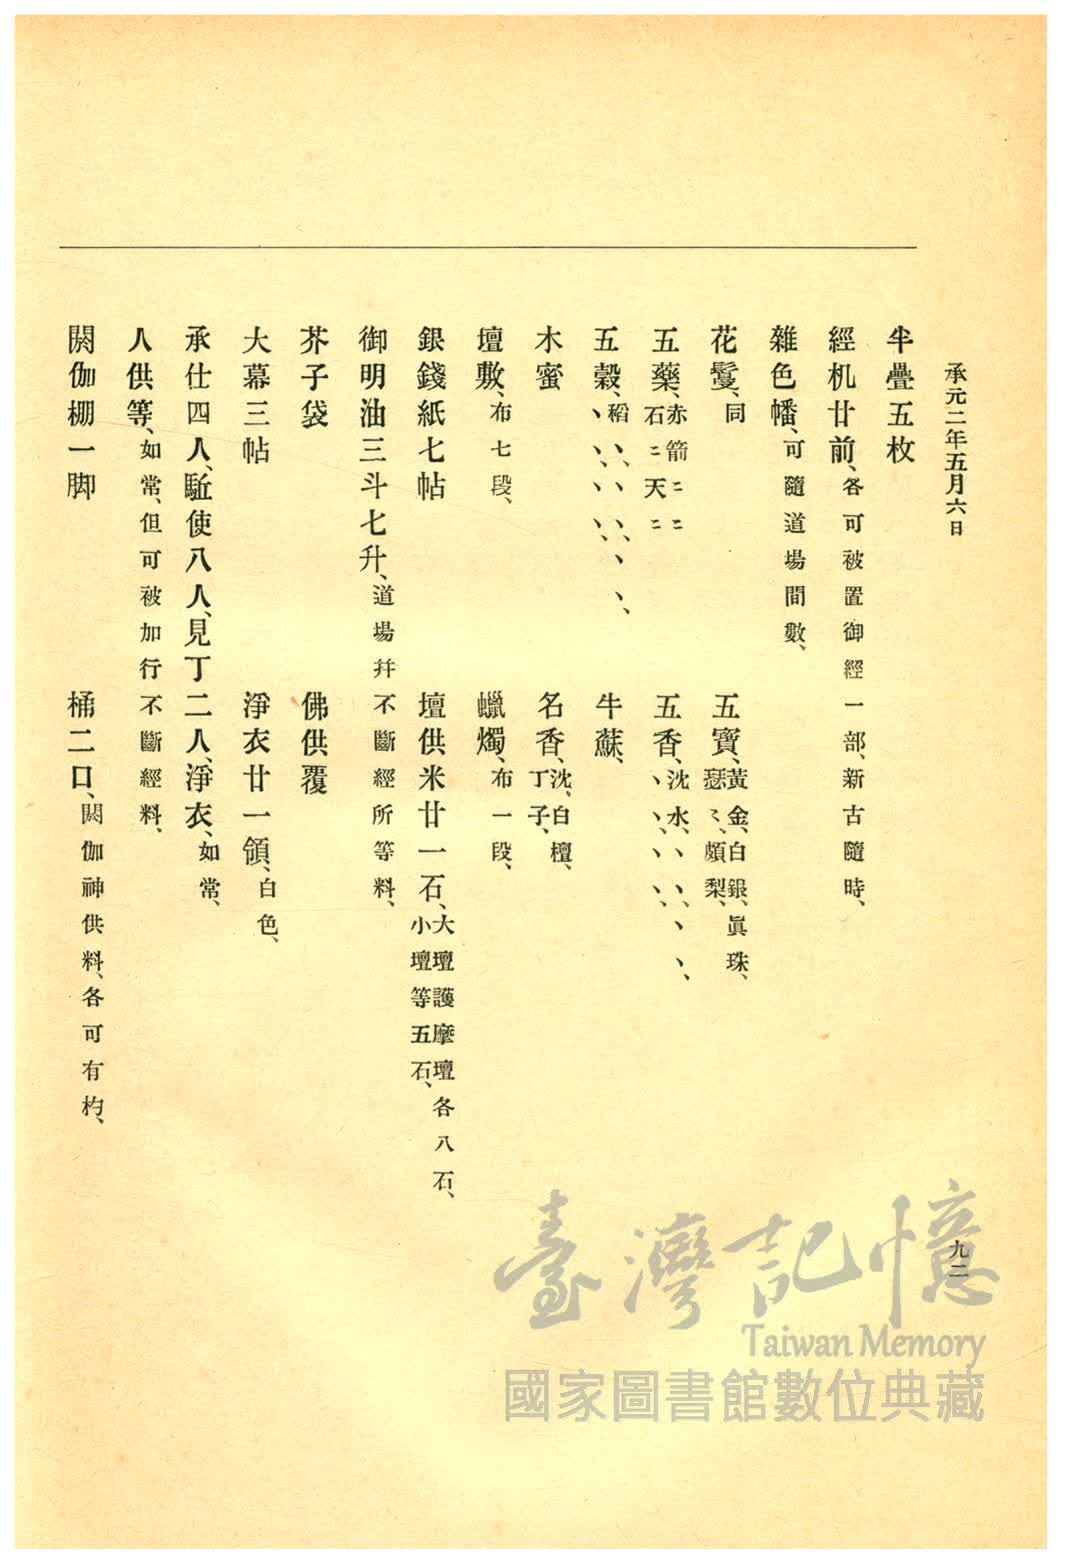 承元二年五月六日
半疊五枚
經机廿前、各可被置御經一部、新古隨時、
雜色幡、可隨道場間數、
花鬘、同
五寶、黃金、白銀、眞珠、瑟〻、頗梨、
五藥、赤箭〻〻石〻天〻
五香、沈水、、、、、、、、
五穀、稻、、、、、、、、、
牛蘇、
木蜜
名香、沈、白檀、丁子、
壇敷、布七段、
蠟燭、布一段、
銀錢紙七帖
壇供米廿一石、大壇護摩壇各八石、小壇等五石、
御明油三斗七升、道場幷不斷經所等料、
芥子袋
佛供覆
大幕三帖
淨衣廿一領、白色、
承仕四人、駈使八人、見丁二人、淨衣、如常、
人供等、如常、但可被加行不斷經料、
閼伽棚一脚
桶二口、閼伽神供料、各可有杓、
九二
臺灣記憶
Taiwan Memory
國家圖書館數位典藏